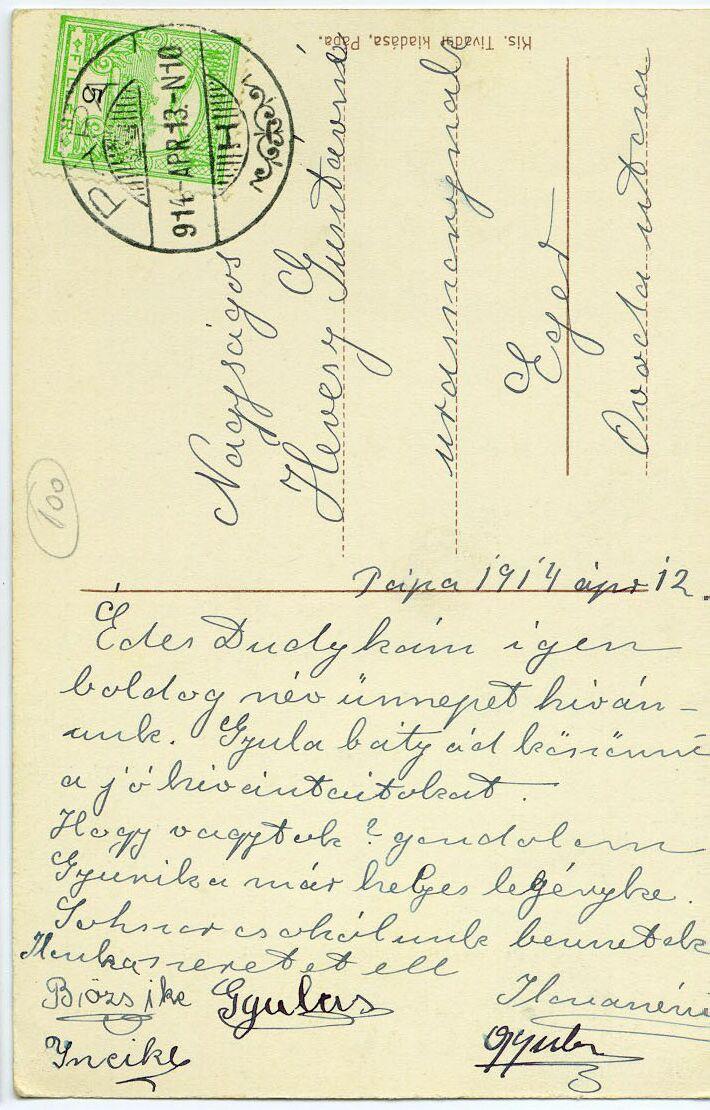 Kis. Tivadar kiadása, Pápa.
FILLÉR
5
914 APR 13.-N10
Nagyságos
Hevesy Gusztávné
urasszonynak
Eger
utca
100
Pápa 1914 ápr 12.
Édes Dudykám igen
boldog név ünnepet kiván-
unk. Gyula bátyád köszöni
a jó kivántaitokat.
Hogy vagytok? gondolom
Gyurika már helyes legényke.
Sokszor csokólunk bennetek
Ilonka szeretet ell
Bözsike Gyulus Ilonanéni
Incike Gyula